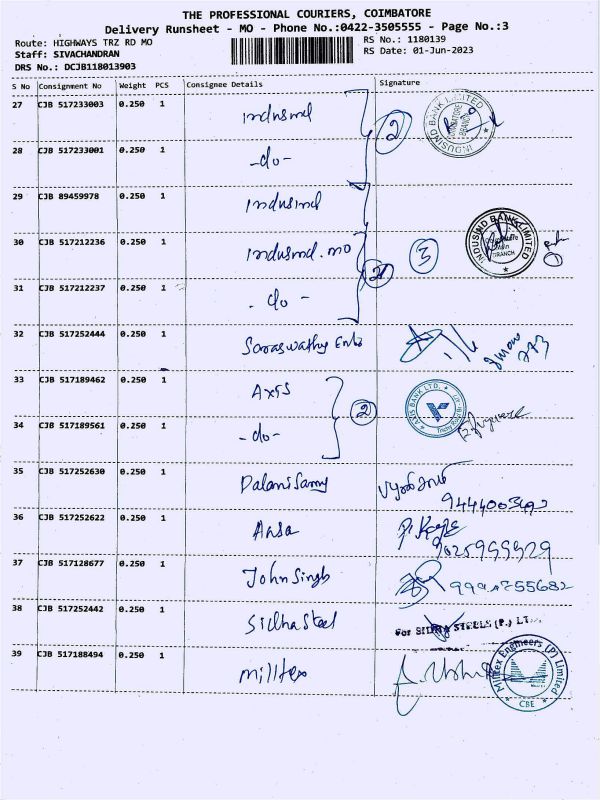 THE PROFESSIONAL COURIERS, COIMBATORE
Delivery Runsheet - MO - Phone No.:0422-3505555 - Page No.:3
Route: HIGHWAYS TRZ RD MO
RS No.: 1180139
Staff: SIVACHANDRAN
RS Date: 01-Jun-2023
DRS No.: DCJB118013903
S No Consignment No Weight PCS Consignee Details Signature
27 CJB 517233003 0.250 1 Indusind
2
INDUSIND BANK LIMITED
28 CJB 517233001 0.250 1 -do-
29 CJB 89459978 0.250 1 Indusind
30 CJB 517212236 0.250 1 Indusind.mo
3
INDUSIND BANK LIMITED
BRANCH
31 CJB 517212237 0.250 1 -do-
32 CJB 517252444 0.250 1 Saraswathy Ent
33 CJB 517189462 0.250 1 Axis
2
AXIS BANK LTD.
34 CJB 517189561 0.250 1 -do-
35 CJB 517252630 0.250 1 Palanisamy
36 CJB 517252622 0.250 1 Ansa
37 CJB 517128677 0.250 1 John Singh
38 CJB 517252442 0.250 1 Sidha Steel
For SIDHA STEELS (P.) LT
39 CJB 517188494 0.250 1 Milltex
Milltex Engineers (P) Limited
CBE